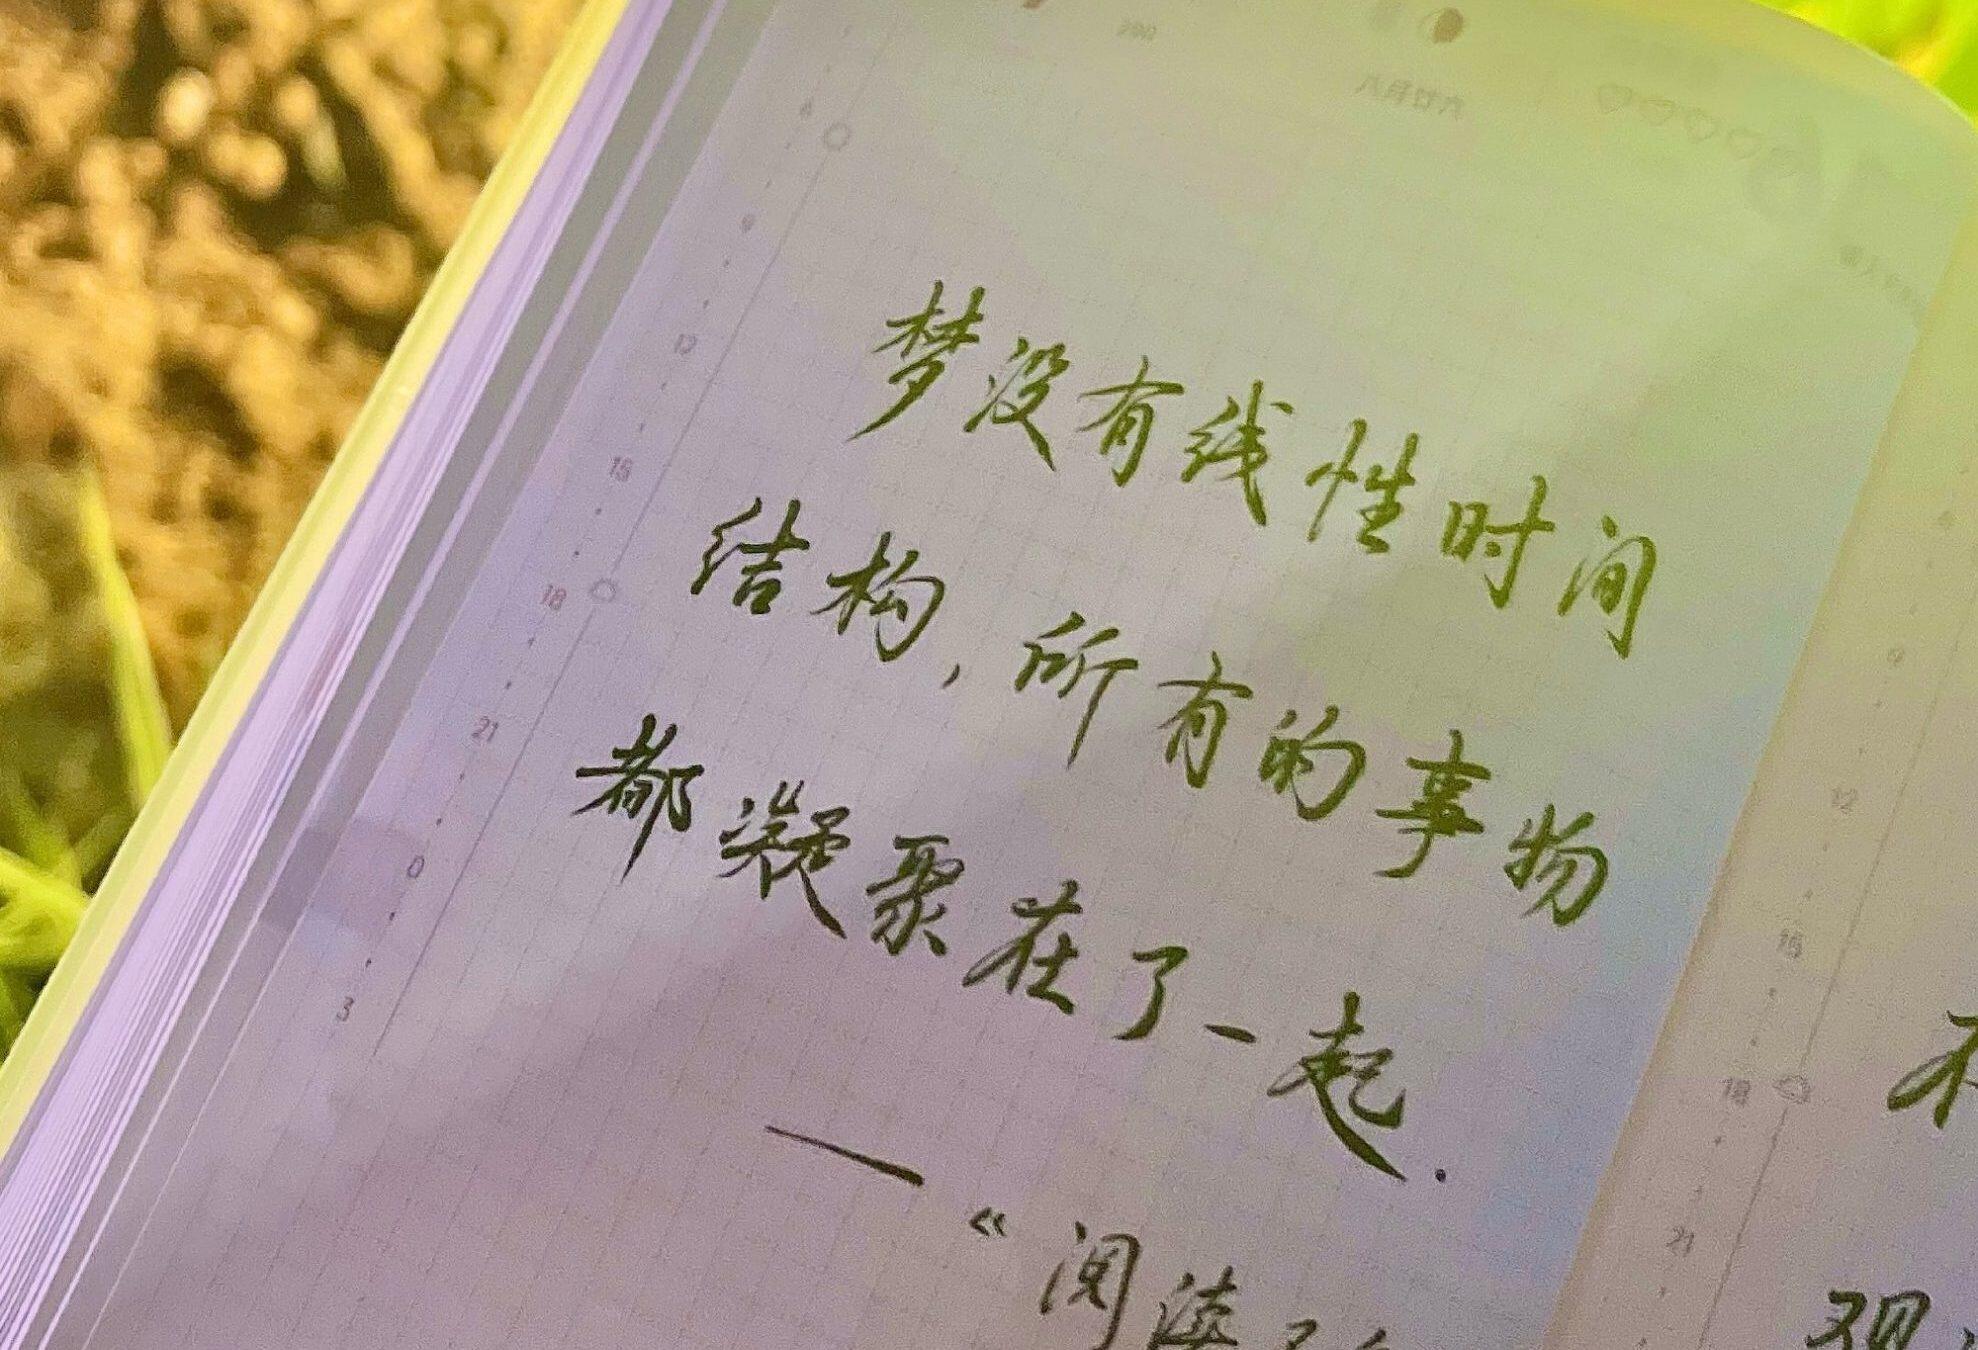 200
八月廿六
6
9
12
15
18
21
0
3
梦没有线性时间
结构,所有的事物
都凝聚在了一起.
—《阅读
9
12
15
18
21
不
观